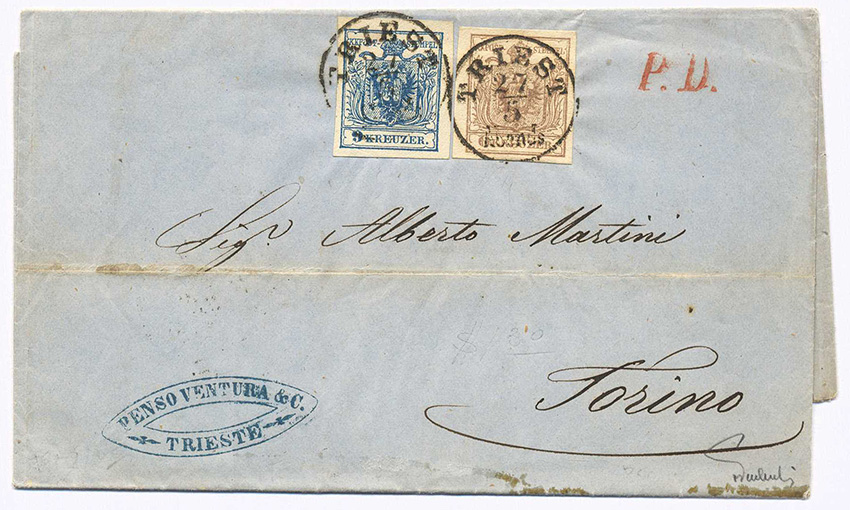 TRIEST
27
9 KREUZER.
TRIEST
27
5
P. D.
Sigr. Alberto Martini
Torino
PENSO VENTURA & C.
TRIESTE